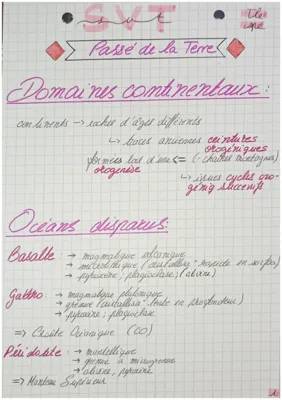 SVT
svt
Tle
spé
Passé de la Terre
Domaines continentaux :
continents → roches d'âges différents
↳ traces anciennes ceintures
orogéniques
formées lors d'une ⇐ (chaînes montagnes)
orogenèse
↳ issues cycles oro-
génique successifs
Océans disparus :
Basalte : → magmatique volcanique
→ microlitique (cristallise rapide en surface)
→ pyroxène, plagioclase, (olivine)
Gabbro : → magmatique plutonique
→ grenue (cristallise lente en profondeur)
→ pyroxène, plagioclase
⇒ Croûte Océanique (CO)
Péridotite : → mantellique
→ grenue à microgrenue
→ olivine, pyroxène
⇒ Manteau Supérieur